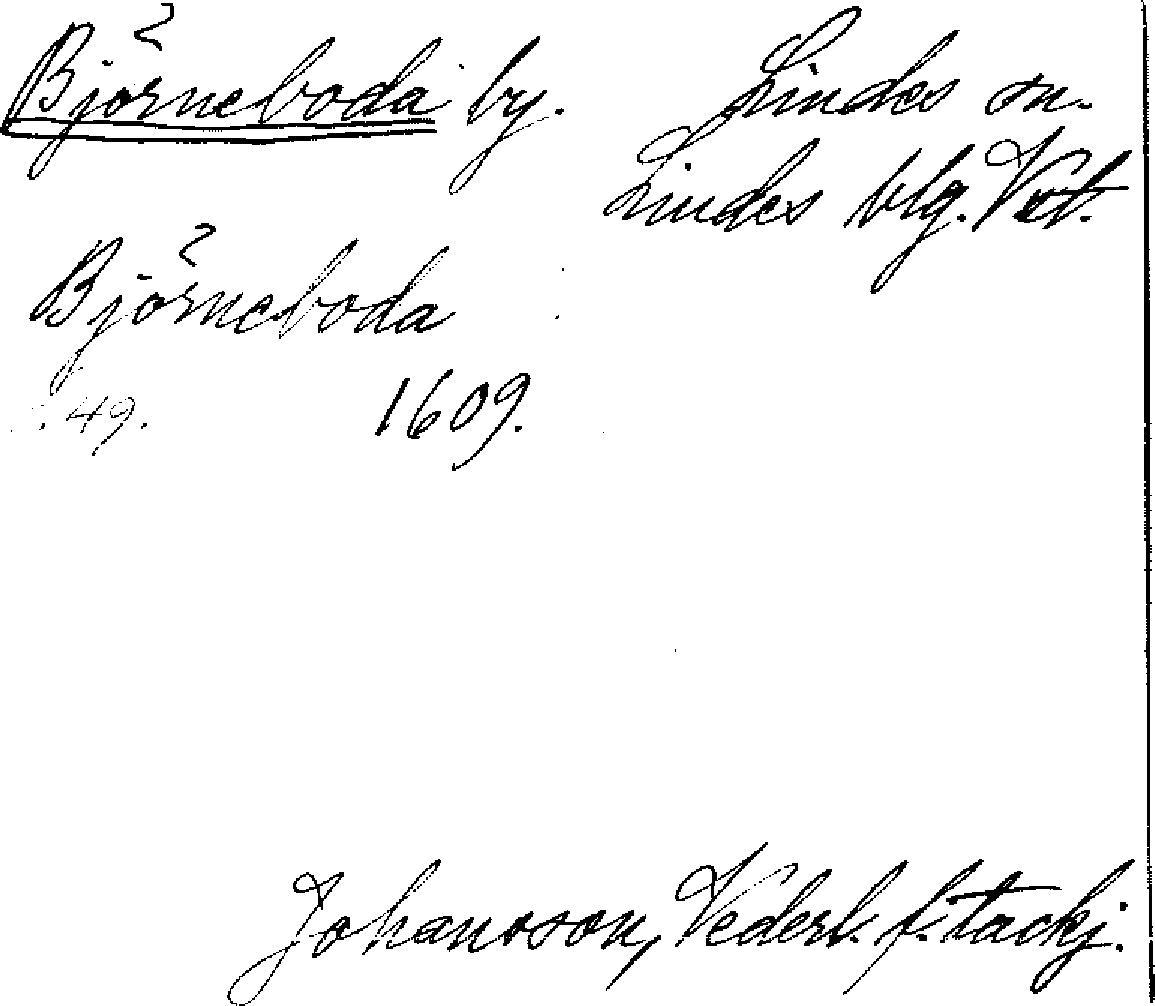 Björneboda by. Lindes sn.
Lindes blg. Vstl.
Björneboda
s. 49. 1609.
Johansson, Vederl. f. tackj.